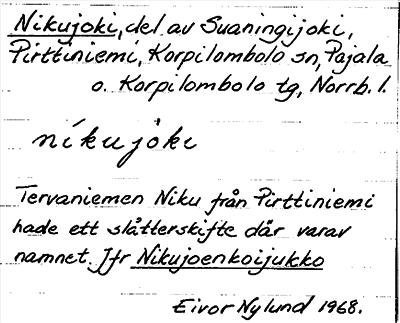 Nikujoki, del av Suaningijoki,
Pirttiniemi, Korpilombolo sn, Pajala
o. Korpilombolo tg, Norrb. l.
nikujoki
Tervaniemen Niku från Pirttiniemi
hade ett slåtterskifte där varav
namnet. Jfr Nikujoenkoijukko
Eivor Nylund 1968.